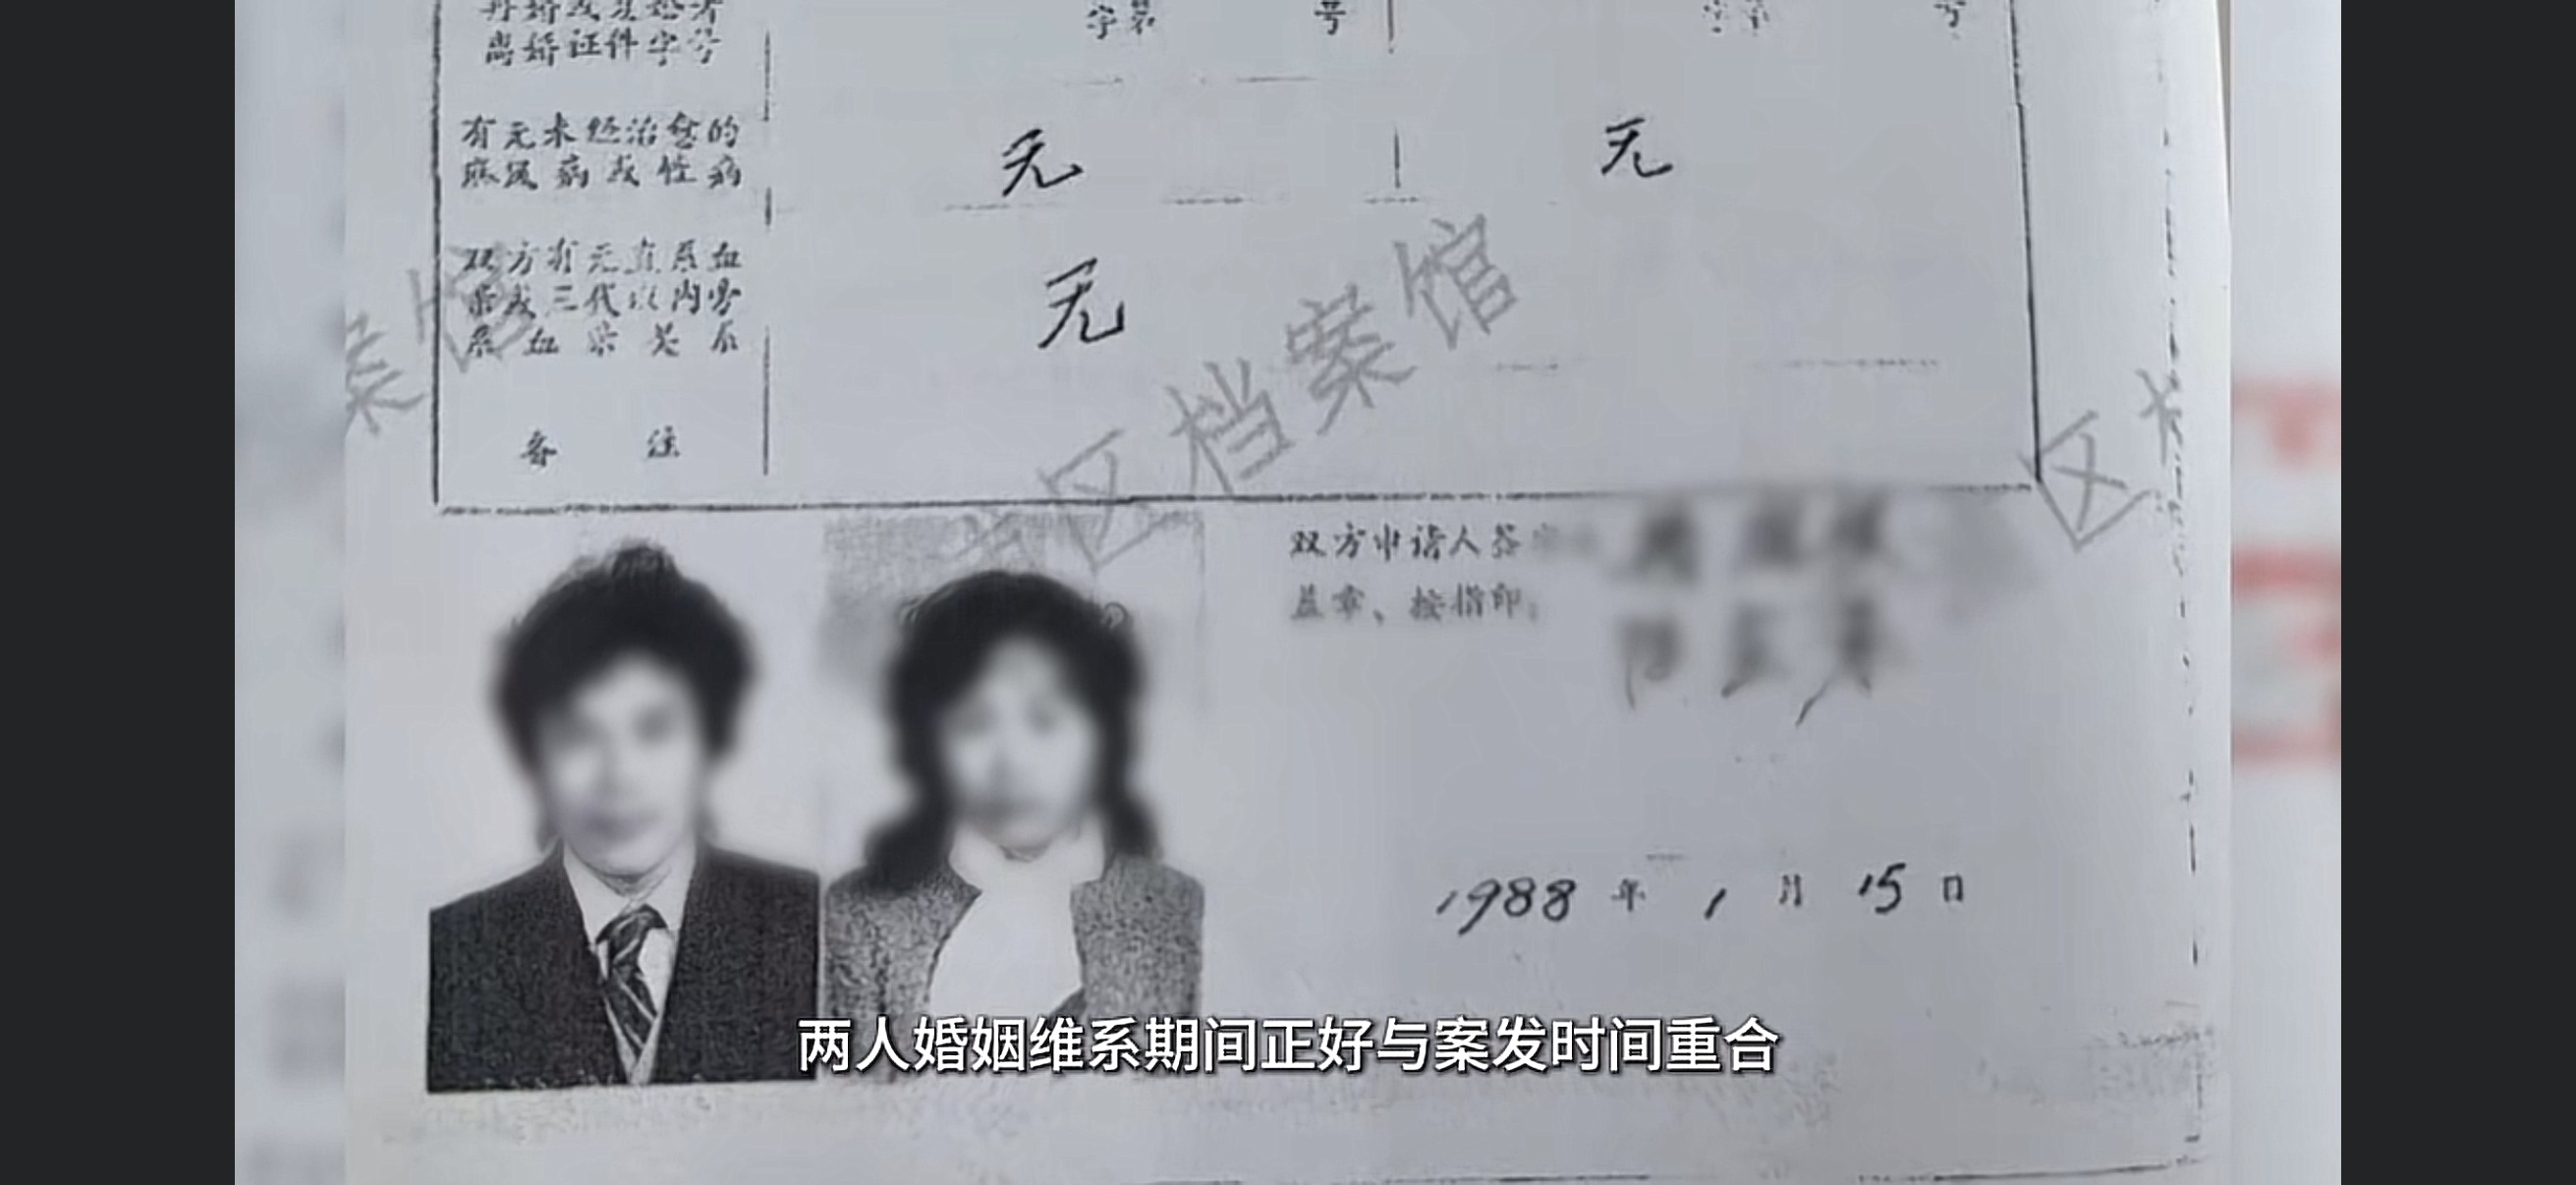 离婚证件字号
字第 号
字第 号
有无未经治愈的
麻风病或性病
无
无
双方有无直系血
亲或三代以内旁
系血亲关系
无
备注
区档案馆
案馆
区档
双方申请人签
盖章、按指印:
1988 年 1 月 15 日
两人婚姻维系期间正好与案发时间重合